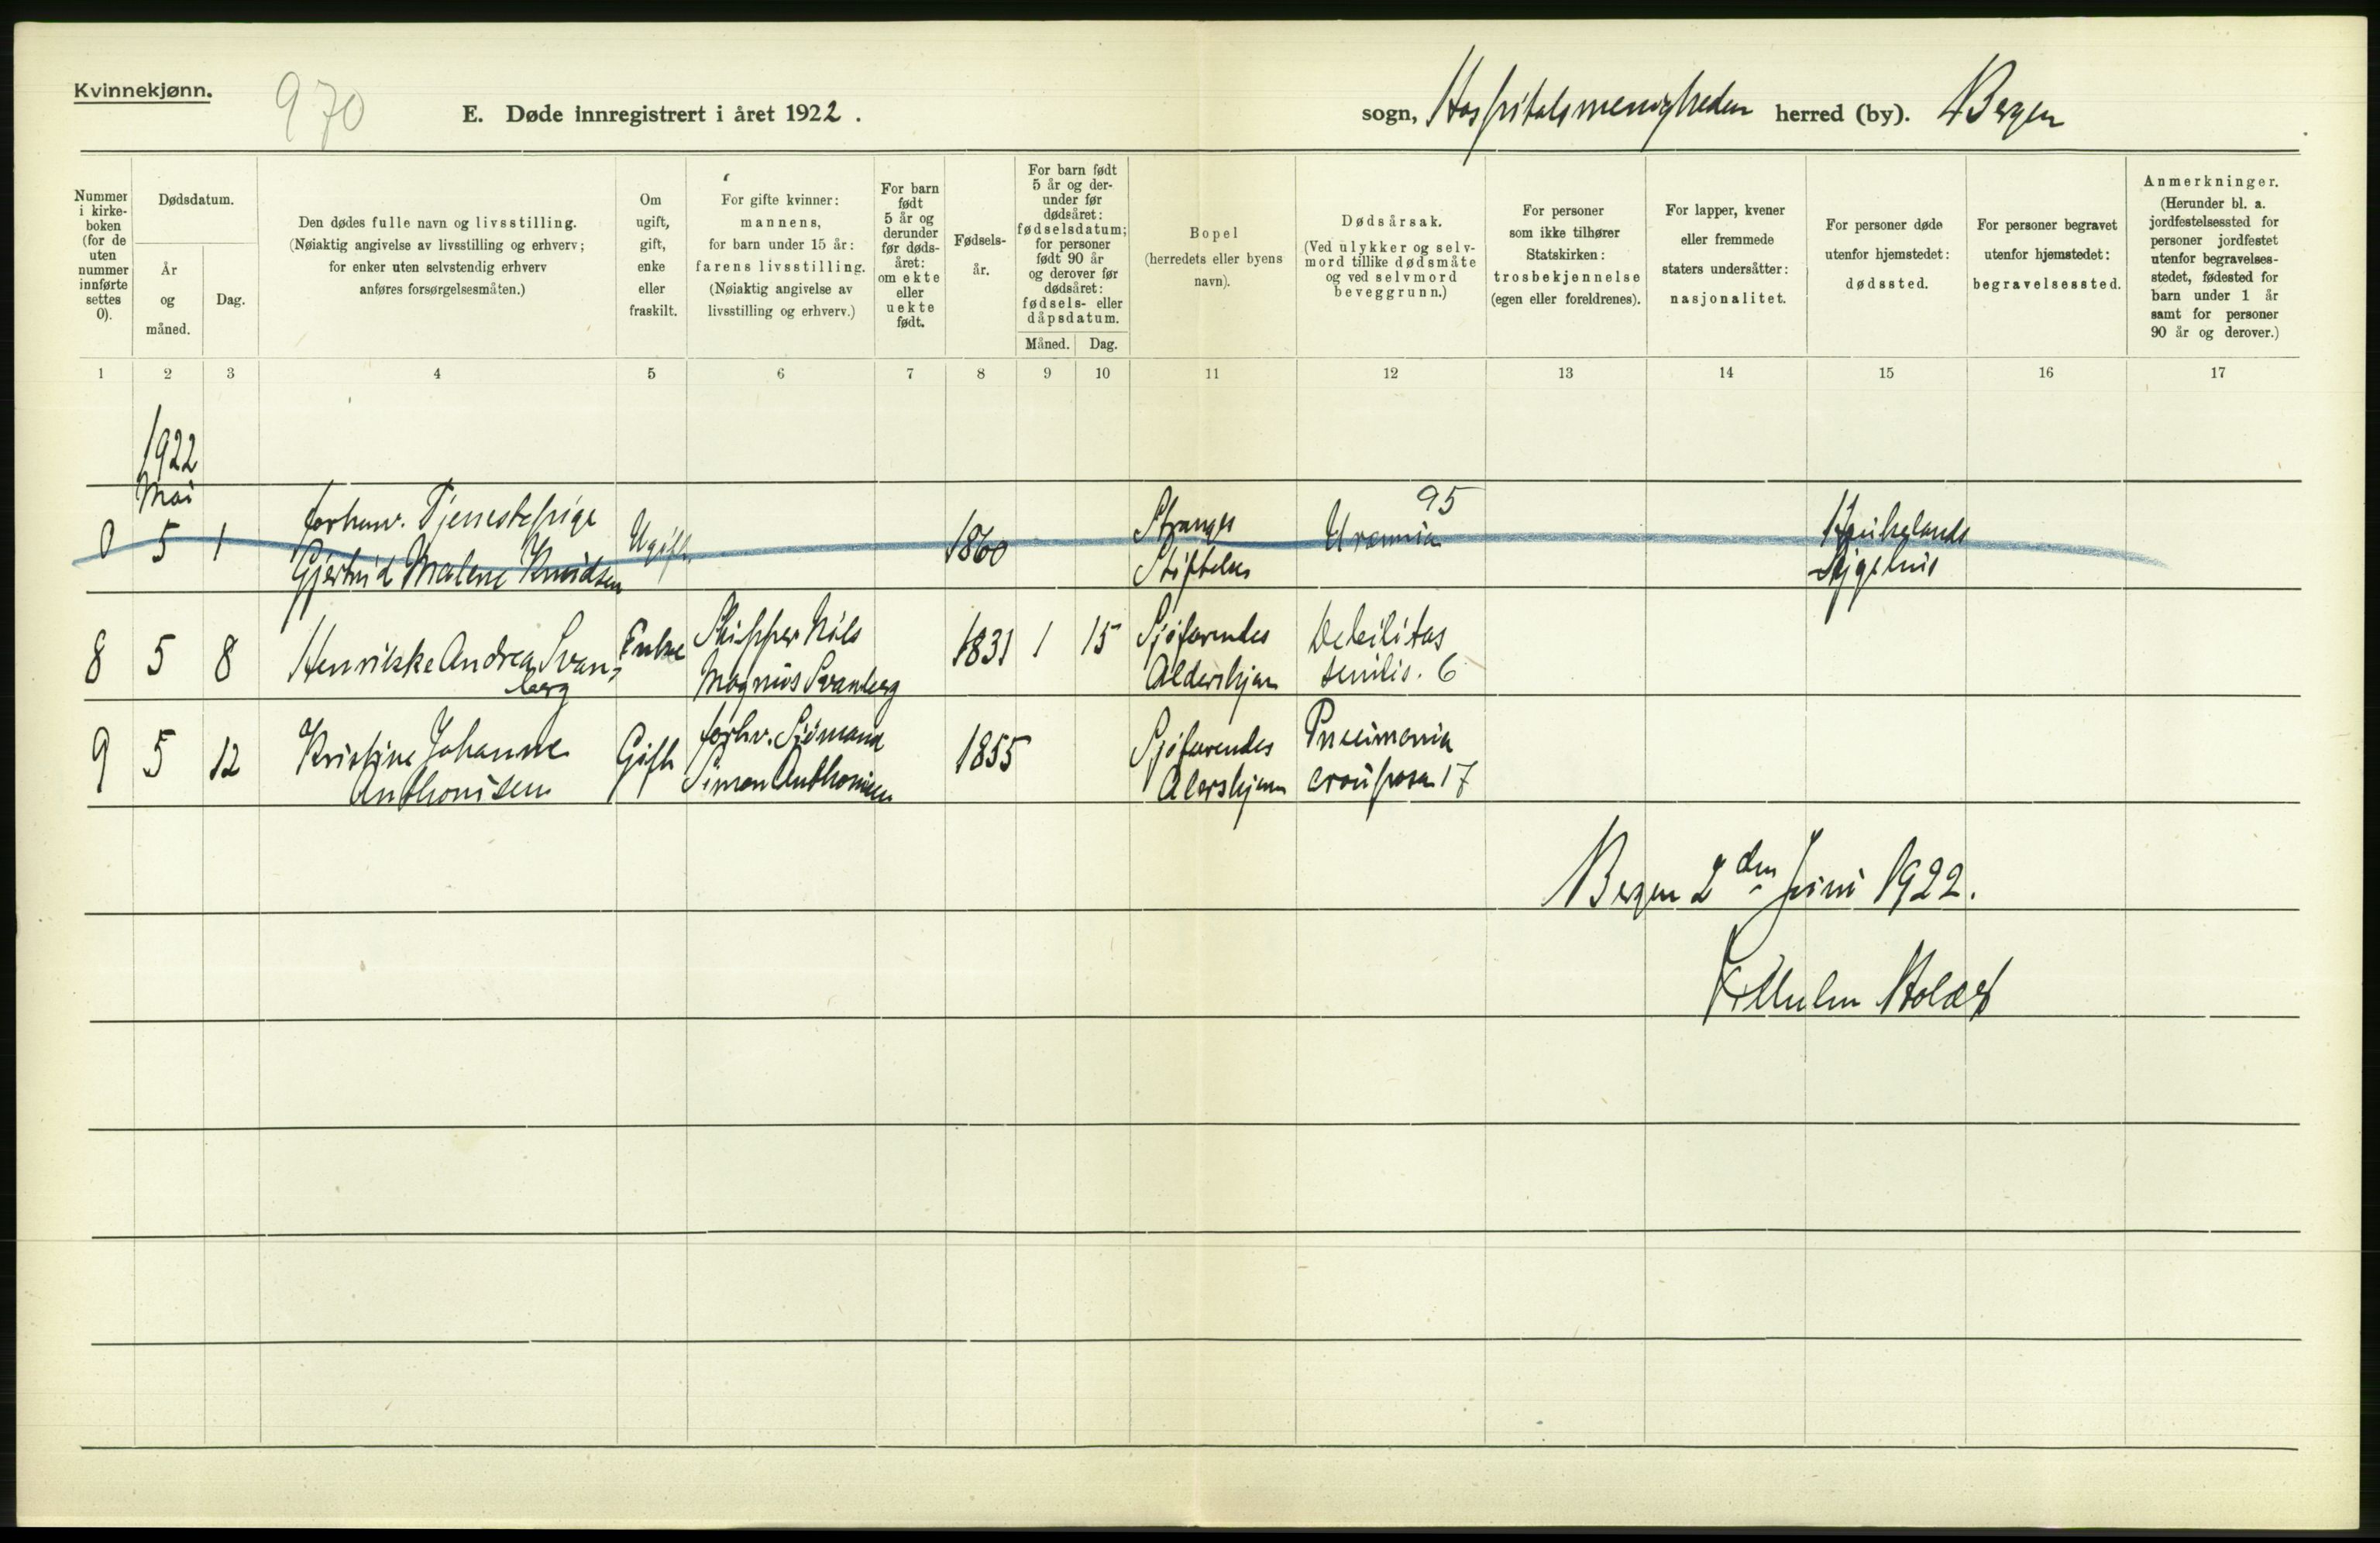 Kvinnekjønn.
970
E. Døde innregistrert i året 1922.
sogn, Hospitalsmenigheden herred (by). Bergen
Nummer
i kirke-
boken
(for de
uten
nummer
innførte
settes
0).
Dødsdatum.
År
og
måned.
Dag.
Den dødes fulle navn og livsstilling.
(Nøiaktig angivelse av livsstilling og erhverv;
for enker uten selvstendig erhverv
anføres forsørgelsesmåten.)
Om
ugift,
gift,
enke
eller
fraskilt.
For gifte kvinner:
mannens,
for barn under 15 år:
farens livsstilling.
(Nøiaktig angivelse av
livsstilling og erhverv.)
For barn
født
5 år og
derunder
før døds-
året:
om ekte
eller
uekte
født.
Fødsels-
år.
For barn født
5 år og der-
under før
dødsåret:
fødselsdatum;
for personer
født 90 år
og derover før
dødsåret:
fødsels- eller
dåpsdatum.
Måned.
Dag.
Bopel
(herredets eller byens
navn).
Dødsårsak.
(Ved ulykker og selv-
mord tillike dødsmåte
og ved selvmord
beveggrunn.)
For personer
som ikke tilhører
Statskirken:
trosbekjennelse
(egen eller foreldrenes).
For lapper, kvener
eller fremmede
staters undersåtter:
nasjonalitet.
For personer døde
utenfor hjemstedet:
dødssted.
For personer begravet
utenfor hjemstedet:
begravelsessted.
Anmerkninger.
(Herunder bl. a.
jordfestelsessted for
personer jordfestet
utenfor begravelses-
stedet, fødested for
barn under 1 år
samt for personer
90 år og derover.)
1 2 3 4 5 6 7 8 9 10 11 12 13 14 15 16 17
1922
Mai
0 5 1
forhenv. Tjenestepige
Gjertrud Malene Knudsen
Ugift.
1860
Stranges
Stiftelse
95
Uræmia
Haukelands
Sygehus
8 5 8
Henrikke Andrea Svan-
berg
Enke
Skipper Nils
Magnus Svanberg
1831 1 15
Sjöfarendes
Aldershjem
Debilitas
senilis. 6
9 5 12
Kristine Johanne
Anthonisen
Gift
forhv. Sjömand
Simon Anthonisen
1855
Sjöfarendes
Alershjem
Pneumonia
crouposa 17
Bergen 2den Juni 1922.
Vilhelm Holdt